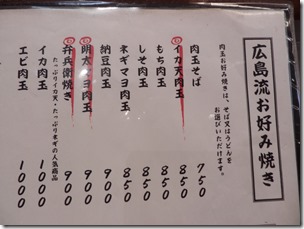 広島流お好み焼き
肉玉お好み焼きは、そば又はうどんを
お選びいただけます。
肉玉そば 750
イカ天肉玉 850
もち肉玉 850
しそ肉玉 850
ネギマヨ肉玉 850
納豆肉玉 900
明太マヨ肉玉 900
弁兵衛焼き 900
たっぷりイカ天・たっぷりネギの人気商品
イカ肉玉 1000
エビ肉玉 1000